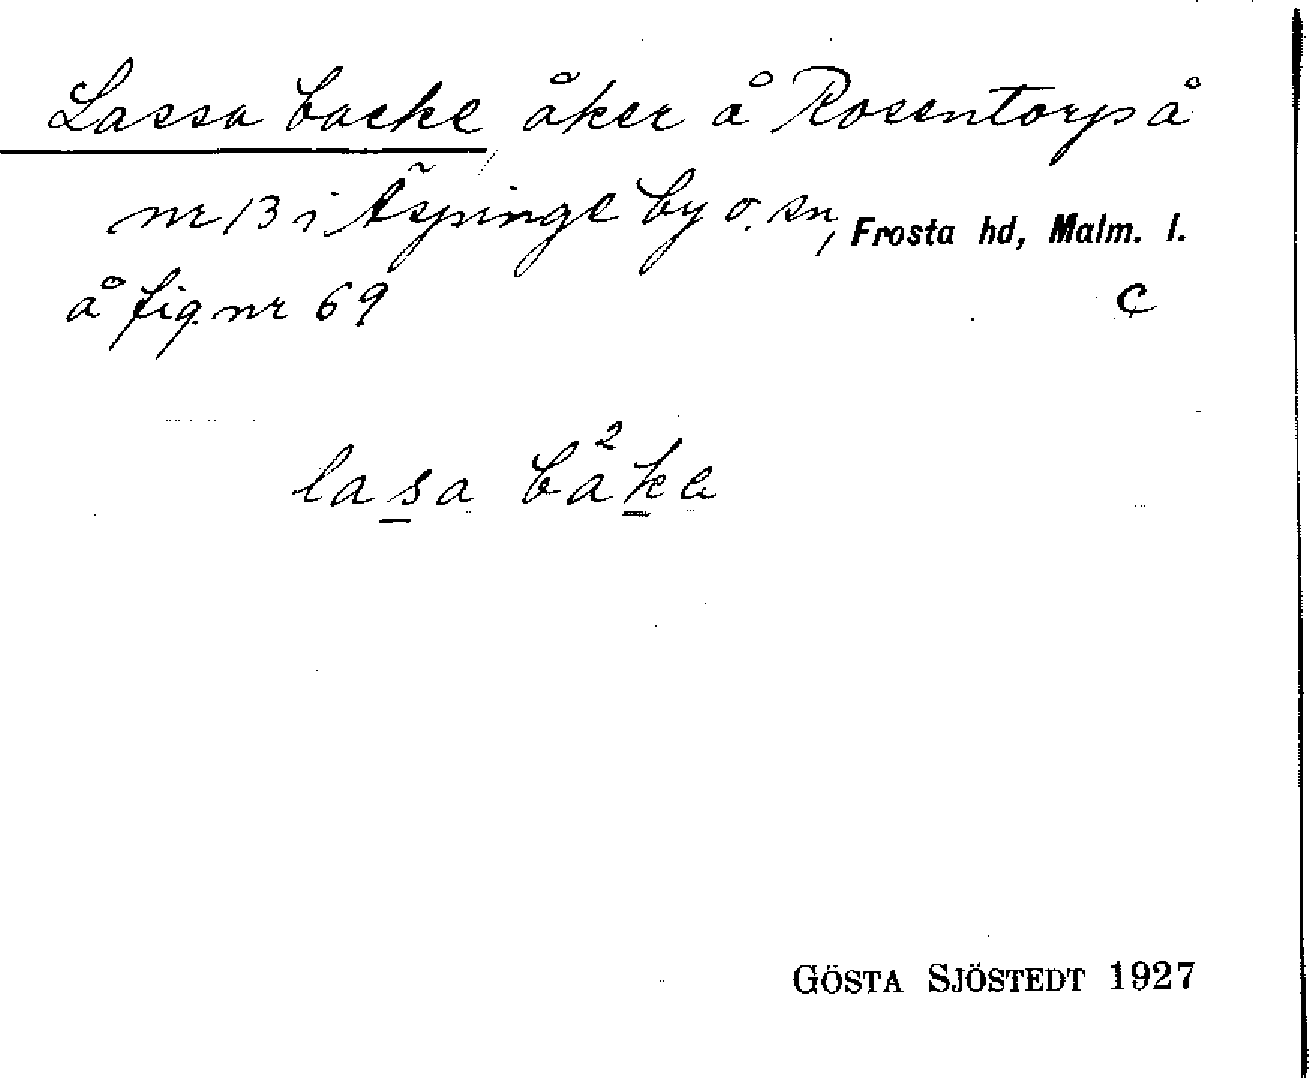 Lassa backe, åker å Rosentorp å
nr 13 i Äspinge by o. sn, Frosta hd, Malm. l.
å fig. nr 69 C
lasa ba²ka
GÖSTA SJÖSTEDT 1927